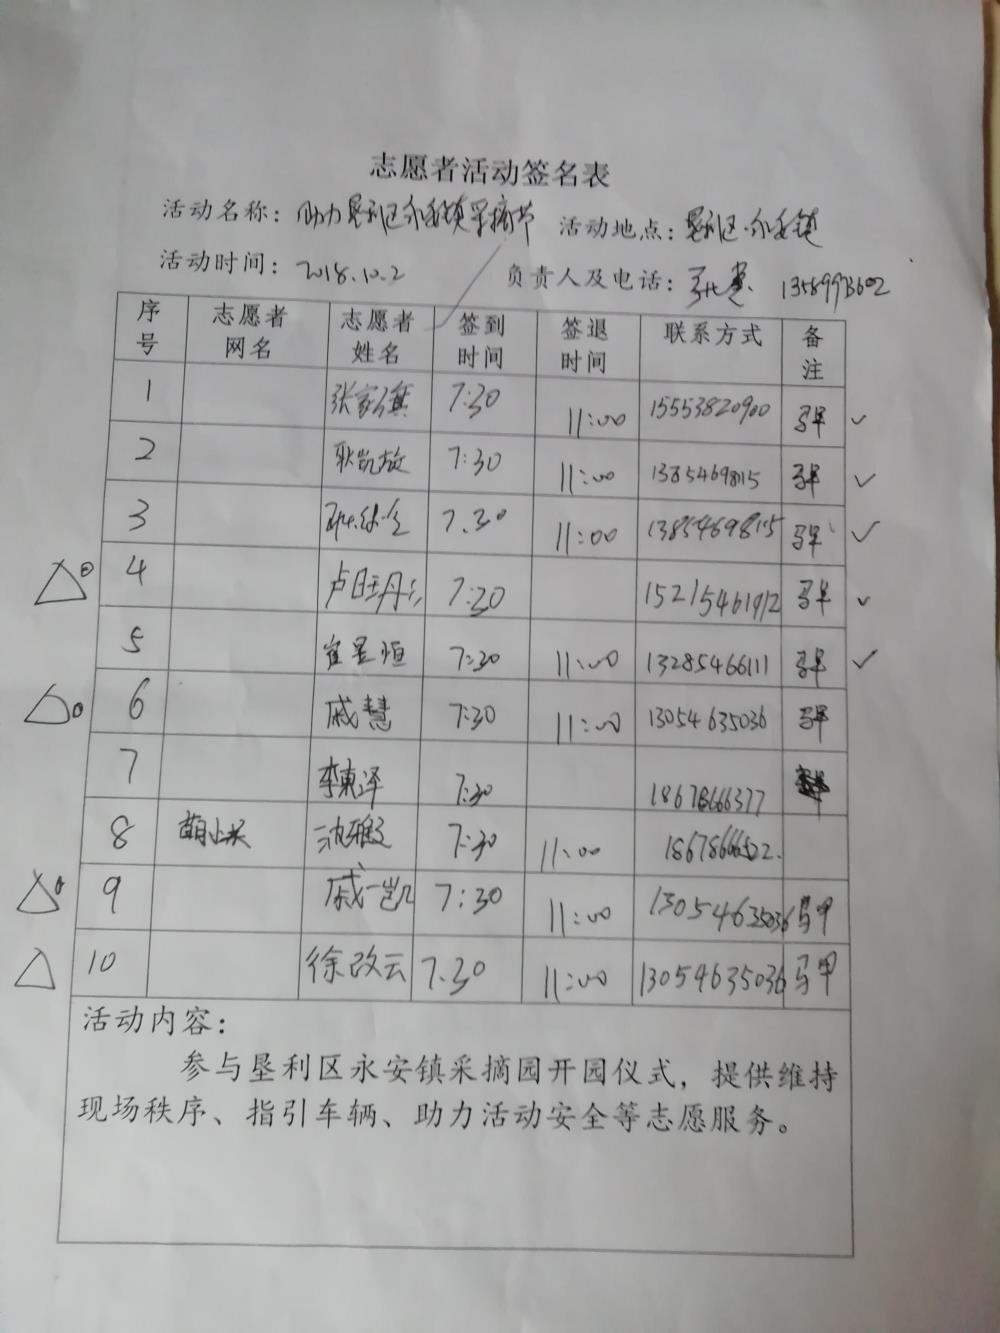 志愿者活动签名表
活动名称：助力垦利区永安镇采摘节 活动地点：垦利区永安镇
活动时间：2018.10.2 负责人及电话：
序号 志愿者网名 志愿者姓名 签到时间 签退时间 联系方式 备注
1 张家 7:30 11:00 15553820900 ✓
2 耿凯 7:30 11:00 ✓
3 7.30 11:00 13854698815 ✓
4 卢旺丹 7:30 15215461912 ✓
5 崔昱恒 7:30 11:00 13285466111 ✓
6 戚慧 7:30 11:00 13054635036
7 李东泽 7:30 18678666377
8 7:30 11:00
9 戚一凯 7:30 11:00 13054635036 马甲
10 徐改云 7.30 11:00 13054635036 马甲
活动内容：
参与垦利区永安镇采摘园开园仪式，提供维持
现场秩序、指引车辆、助力活动安全等志愿服务。